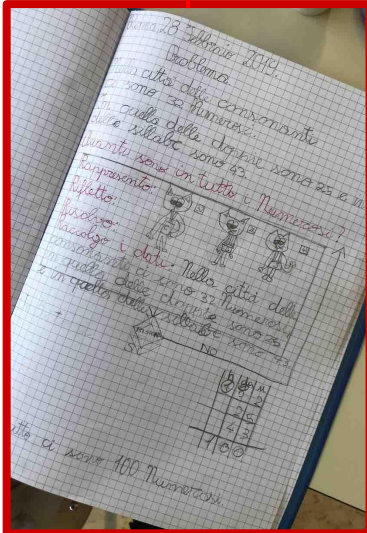 28 Febbraio 2019.
Problema.
Nella città delle consonanti
ci sono 32 numerosi.
In quella delle doppie sono 25 e in
delle sillabe sono 43.
Quanti sono in tutto i Numerosi?
Rappresento:
Rifletto:
Risolvo:
Raccolgo i dati: Nella città delle
consonanti ci sono 32 Numerosi
in quella delle doppie sono 25
e in quella delle sillabe sono 43.
NO
h da u
3 2
2 5
4 3
1 0 0
ci sono 100 Numerosi